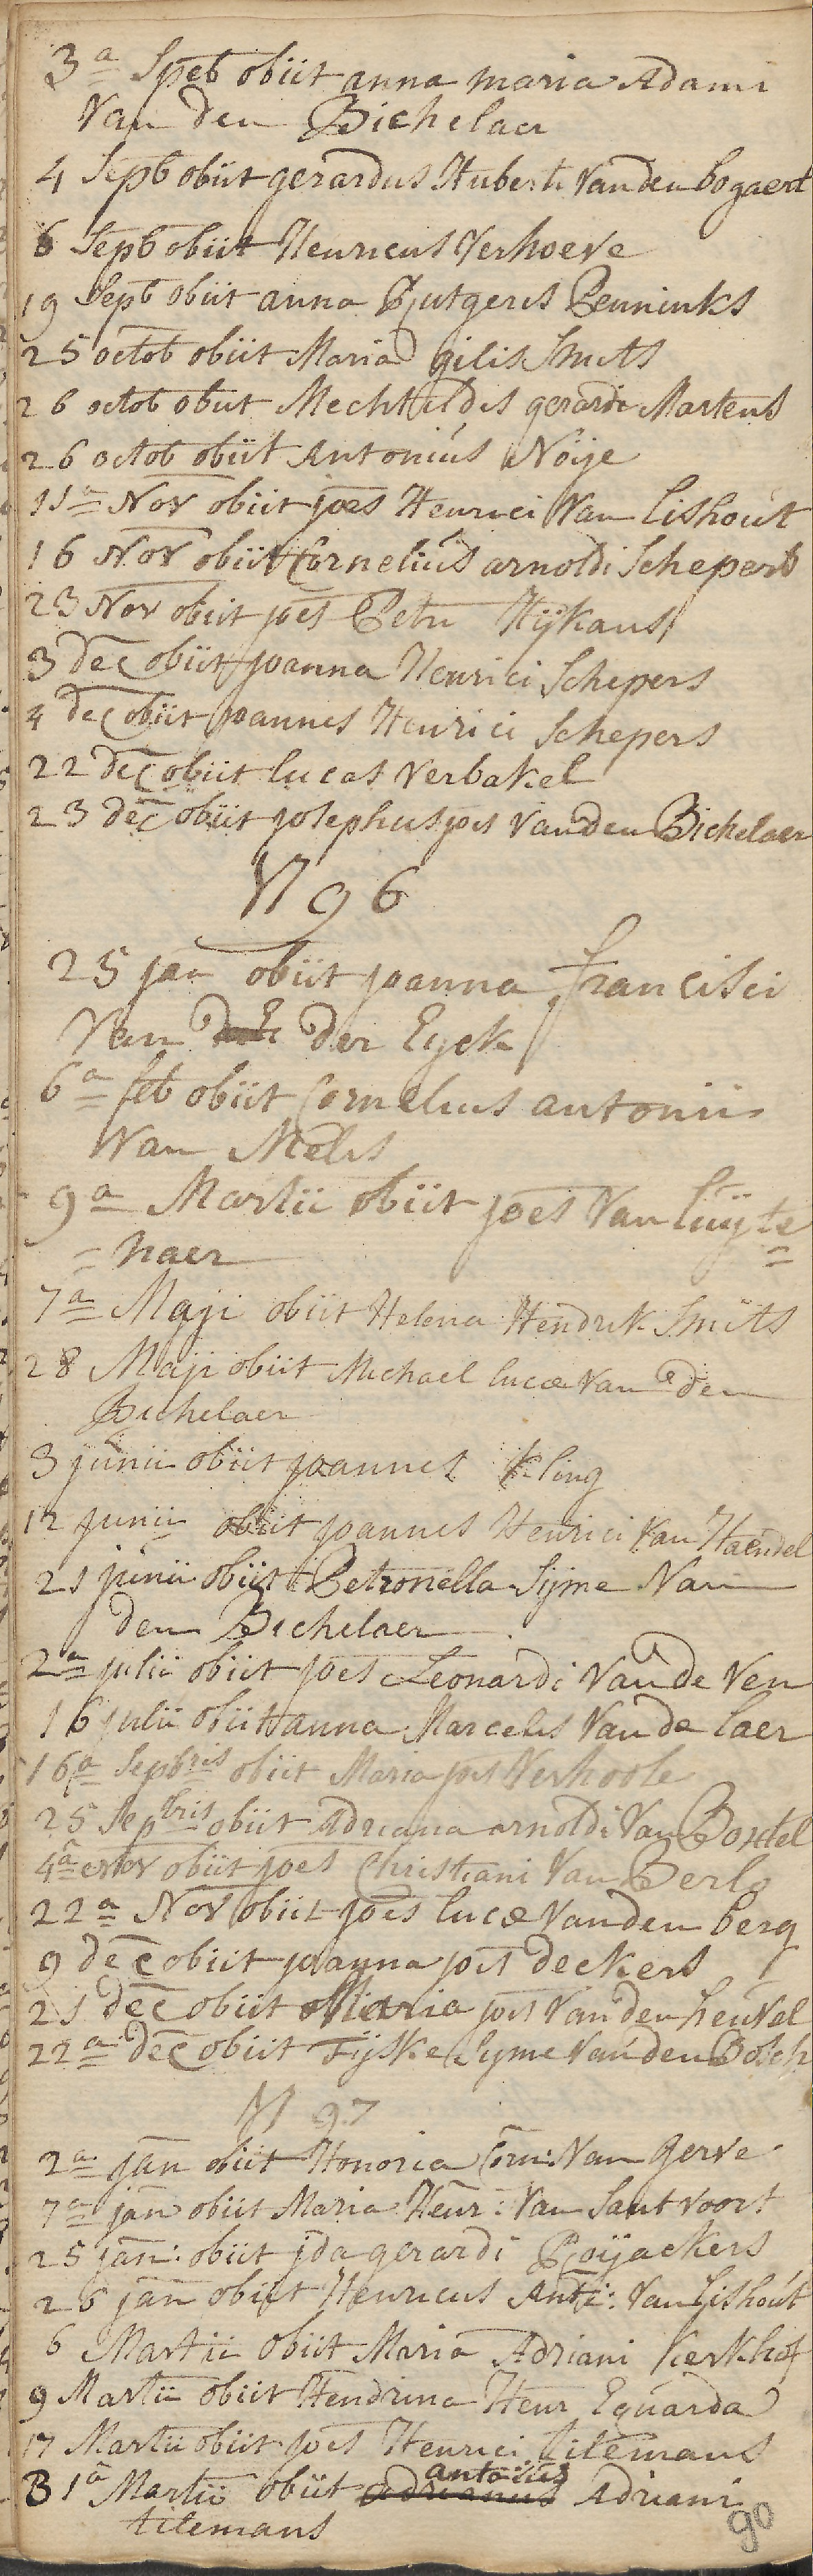 3a Speb obiit anna maria Adami
Van den Bichelaer
4 Septb obiit gerardus Huberti Vanden bogaert
6 Septb obiit Henricus Verhoeve
19 Septb obiit anna Rutgers Pennincks
25 octob obiit Maria gilis Smits
26 octob obiit Mechtildis gerardi Martens
26 octob obiit Antonius Noije
11a Nov obiit joes Henrici Van lishout
16 Nov obiit Cornelius arnoldi Schepers
23 Nov obiit joes Petri Hijkans
3 dec obiit joanna Henrici Schepers
4 dec obiit joannes Henrici Schepers
22 dec obiit lucas Verbakel
23 dec obiit josephus jois Vanden Bichelaer
1796
25 jan obiit joanna francisci
Van der Eyck
6a feb obiit Cornelius antonii
Van Melis
9a Martii obiit joes Van luijte
= naer
7a Maji obiit Helena Hendrik Smits
28 Maji obiit Michael lucæ Van den
Bichelaer
3 junii obiit joannes Kling
12 junii obiit joannes Henrici Van Haendel
21 junii obiit Petronella Sijme Van
den Bichelaer
2a julii obiit joes Leonardi Van de Ven
16 julii obiit anna Marcelis Van de laer
16a Sepbris obiit Maria jois Verhoole
25 Sepbris obiit Adriana arnoldi Van Boxtel
4a nov obiit joes Christiani Van Berlo
22a Nov obiit joes lucæ Vanden berg
9 dec obiit joanna jois deckers
21 dec obiit Maria jois Van den heuvel
22a dec obiit Fijske Syme Vanden Bosch
1797
2a jan obiit Honorica Corn: Van gerve
7a jan obiit Maria Henr: Van Santvoort
25 jan: obiit jda gerardi Roijackers
26 jan obiit Henricus Anti: Van Lishout
6 Martii obiit Maria Adriani Kerkhof
9 Martii obiit Hendrina Henr Eguarda
17 Martii obiit joes Henrici tilemans
31a Martii obiit adrianus antonius Adriani
tilemans
90